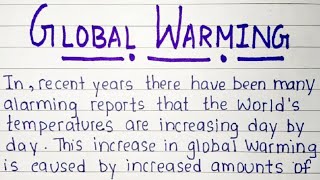 GLOBAL WARMING
In, recent years there have been many
alarming reports that the World's
temperatures are increasing day by
day. This increase in global warming
is caused by increased amounts of